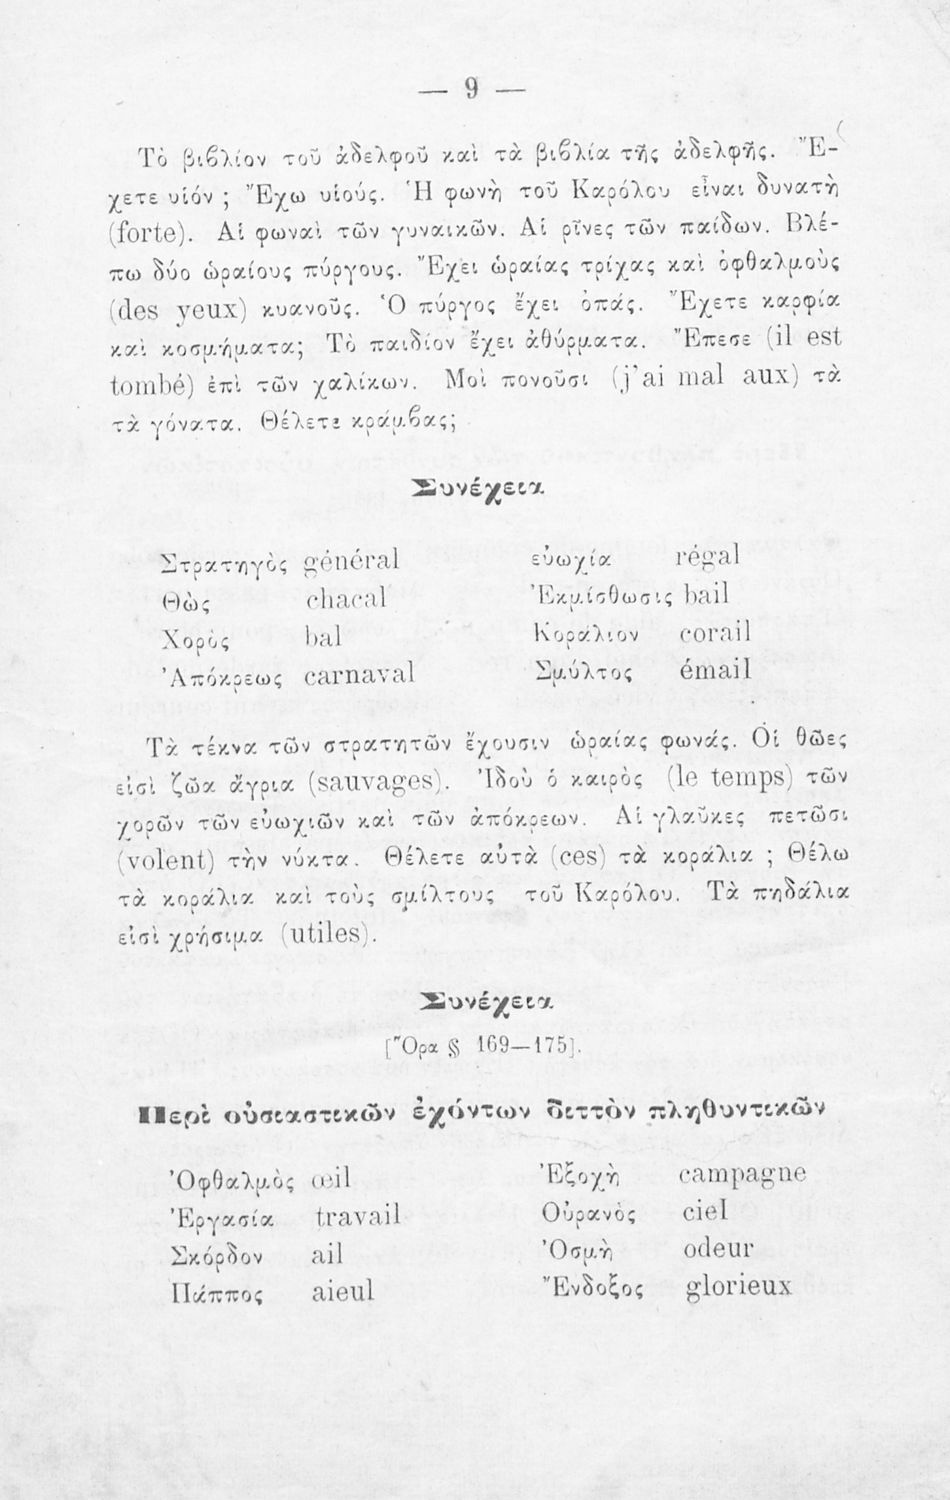 — 9 —
Τὸ βιβλίον τοῦ ἀδελφοῦ καὶ τὰ βιβλία τῆς ἀδελφῆς. Ἔ-
χετε υἱόν ; Ἔχω υἱούς. Ἡ φωνὴ τοῦ Καρόλου εἶναι δυνατὴ
(forte). Αἱ φωναὶ τῶν γυναικῶν. Αἱ ρῖνες τῶν παίδων. Βλέ-
πω δύο ὡραίους πύργους. Ἔχει ὡραίας τρίχας καὶ ὀφθαλμοὺς
(des yeux) κυανοῦς. Ὁ πύργος ἔχει ὀπάς. Ἔχετε καρφία
καὶ κοσμήματα; Τὸ παιδίον ἔχει ἀθύρματα. Ἔπεσε (il est
tombé) ἐπὶ τῶν χαλίκων. Μοὶ πονοῦσι (j'ai mal aux) τὰ
τὰ γόνατα. Θέλετε κράμβας;
Συνέχεια
Στρατηγὸς général εὐωχία régal
Θὼς chacal Ἐκμίσθωσις bail
Χορὸς bal Κοράλιον corail
Ἀπόκρεως carnaval Σμύλτος émail
Τὰ τέκνα τῶν στρατητῶν ἔχουσιν ὡραίας φωνάς. Οἱ θῶες
εἰσὶ ζῶα ἄγρια (sauvages). Ἰδοὺ ὁ καιρὸς (le temps) τῶν
χορῶν τῶν εὐωχιῶν καὶ τῶν ἀπόκρεων. Αἱ γλαῦκες πετῶσι
(volent) τὴν νύκτα. Θέλετε αὐτὰ (ces) τὰ κοράλια ; Θέλω
τὰ κοράλια καὶ τοὺς σμίλτους τοῦ Καρόλου. Τὰ πηδάλια
εἰσὶ χρήσιμα (utiles).
Συνέχεια
[Ὅρα § 169—175].
Περὶ οὐσιαστικῶν ἐχόντων διττὸν πληθυντικῶν
Ὀφθαλμὸς œil Ἐξοχὴ campagne
Ἐργασία travail Οὐρανὸς ciel
Σκόρδον ail Ὀσμὴ odeur
Πάππος aieul Ἔνδοξος glorieux